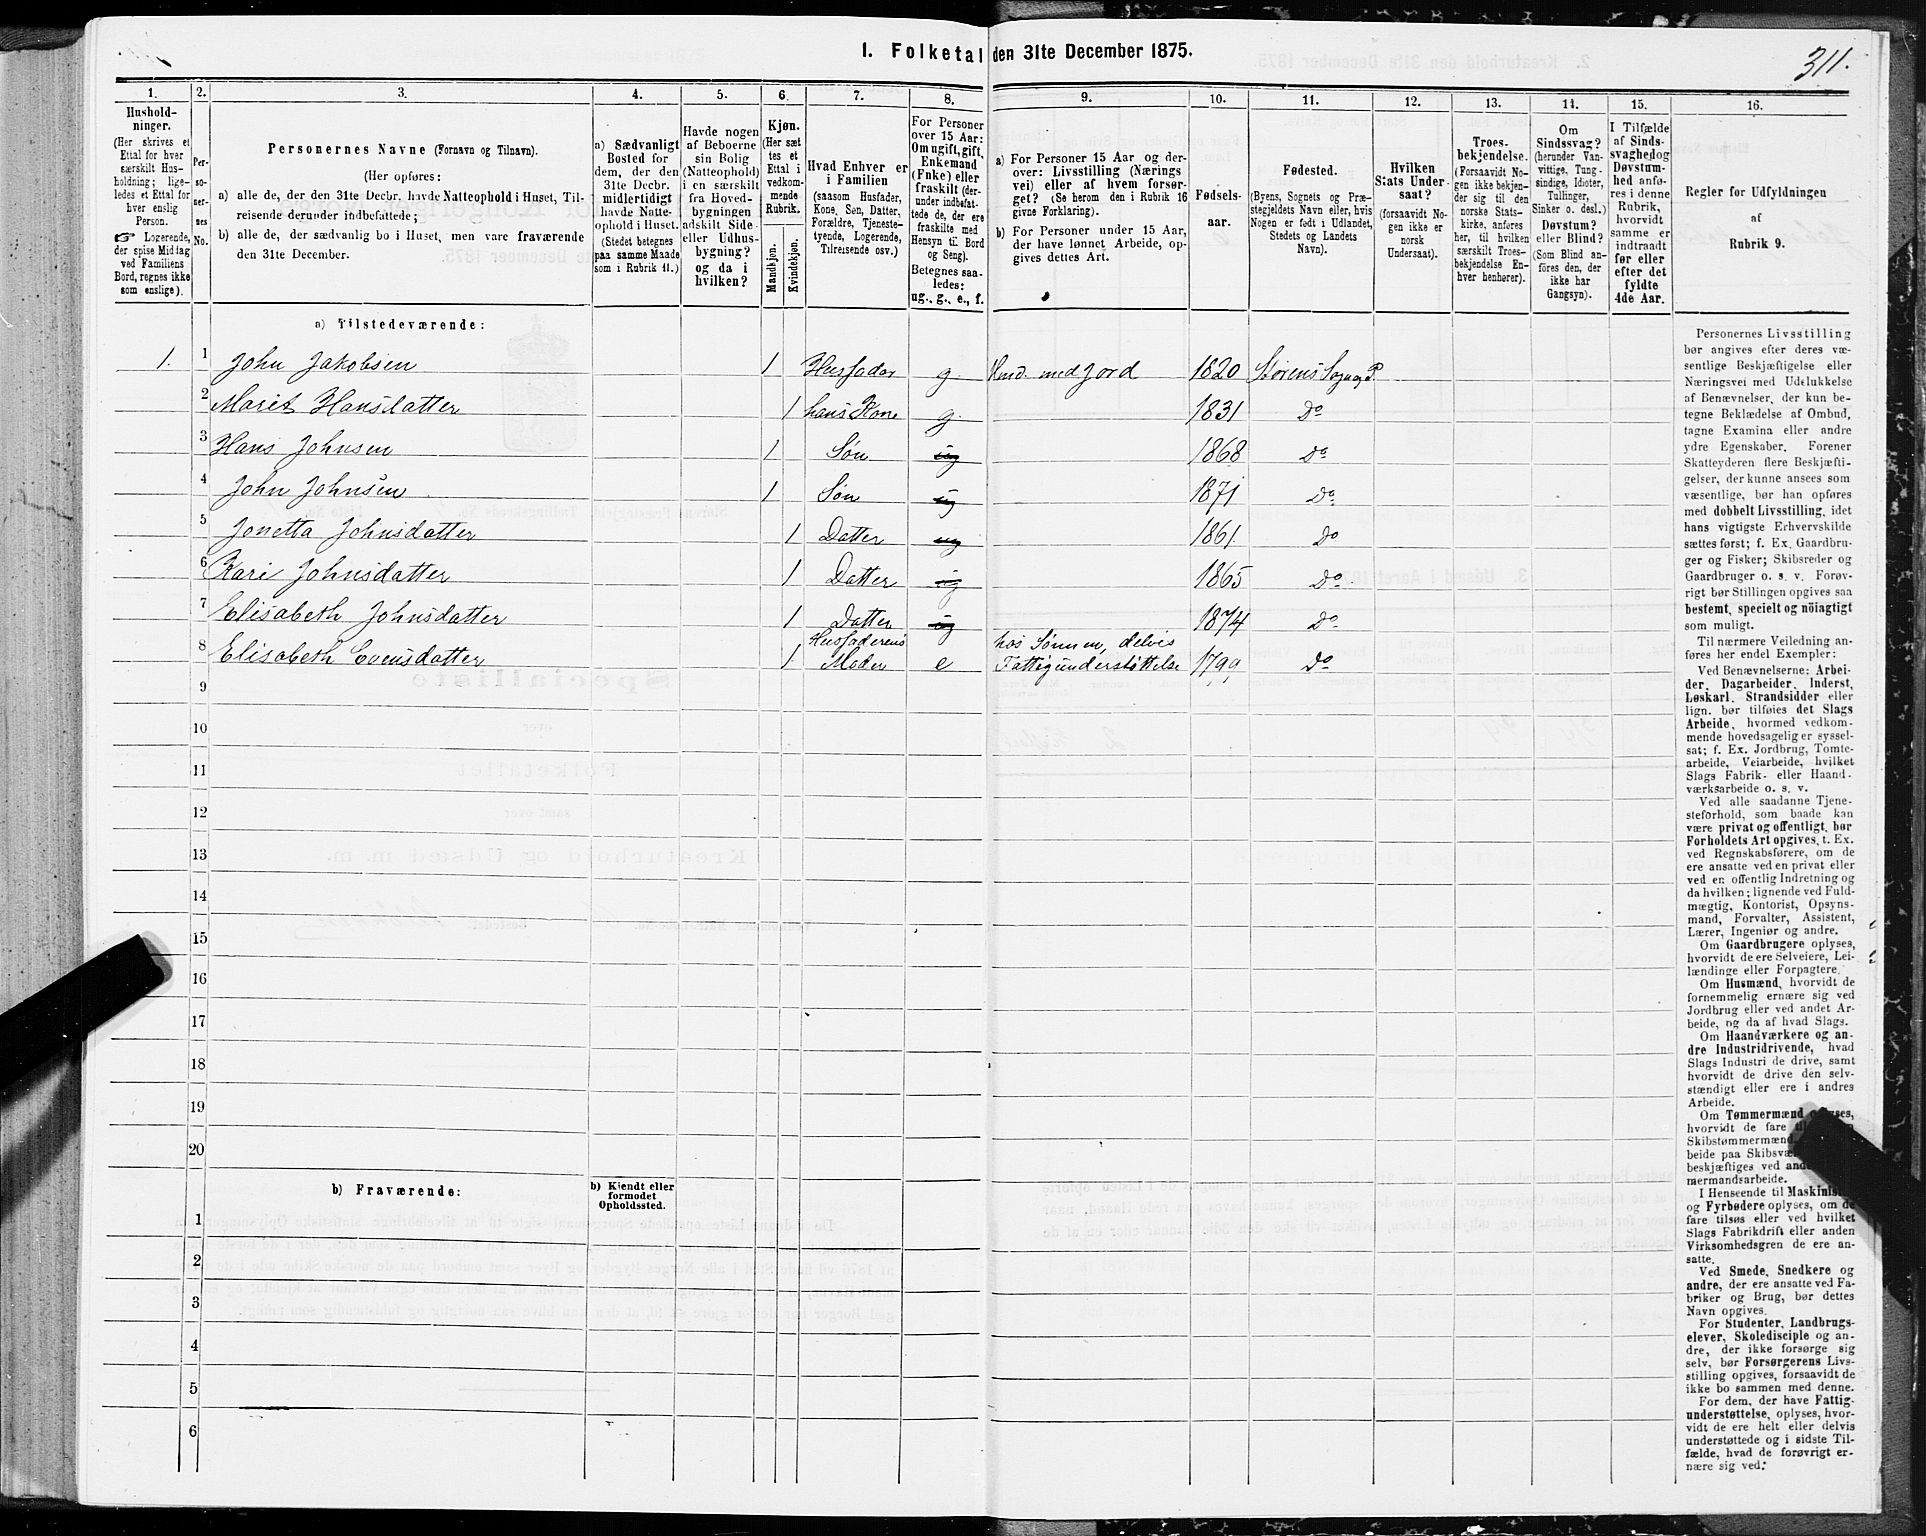 I. Folketal den 31te December 1875.
311.
1. 2. 3. 4. 5. 6. 7. 8. 9. 10. 11. 12. 13. 14. 15. 16.
Hushold-
ninger.
(Her skrives et
Ettal for hver
særskilt Hus-
holdning; lige-
ledes et Ettal for
hver enslig
Person.
☞ Logerende,
der spise Middag
ved Familiens
Bord, regnes ikke
som enslige).
Per-
so-
ner-
nes
No.
Personernes Navne (Fornavn og Tilnavn).
(Her opføres:
a) alle de, der den 31te Decbr. havde Natteophold i Huset, Til-
reisende derunder indbefattede;
b) alle de, der sædvanlig bo i Huset, men vare fraværende
den 31te December.
a) Sædvanligt
Bosted for
dem, der den
31te Decbr.
midlertidigt
havde Natte-
ophold i Huset.
(Stedet betegnes
paa samme Maade
som i Rubrik 11.)
Havde nogen
af Beboerne
sin Bolig
(Natteophold)
i en særskilt
fra Hoved-
bygningen
adskilt Side-
eller Udhus-
bygning?
og da i
hvilken?
Kjøn.
(Her sæt
tes et
Ettal i
vedkom-
mende
Rubrik.
Mandkjøn.
Kvindekjøn.
Hvad Enhver er
i Familien
(saasom Husfader,
Kone, Søn, Datter,
Forældre, Tjeneste-
tyende, Logerende,
Tilreisende osv.)
For Personer
over 15 Aar:
Om ugift, gift,
Enkemand
(Enke) eller
fraskilt (der-
under indbefat-
tede de, der ere
fraskilte med
Hensyn til Bord
og Seng).
Betegnes saa-
ledes:
ug., g., e., f.
a) For Personer 15 Aar og der-
over: Livsstilling (Nærings
vei) eller af hvem forsør-
get? (Se herom den i Rubrik 16
givne Forklaring).
b) For Personer under 15 Aar,
der have lønnet Arbeide, op-
gives dettes Art.
Fødsels-
aar.
Fødested.
(Byens, Sognets og Præ-
stegjeldets Navn eller, hvis
Nogen er født i Udlandet,
Stedets og Landets
Navn).
Hvilken
Stats Under-
saat?
(forsaavidt No-
gen ikke er
norsk
Undersaat).
Troes-
bekjendelse.
(Forsaavidt No-
gen ikke bekjen-
der sig til den
norske Stats-
kirke, anføres
her, til hvilken
særskilt Troes-
bekjendelse En-
hver henhører).
Om
Sindssvag?
(herunder Van-
vittige, Tung-
sindige, Idioter,
Tullinger,
Sinker o. desl.)
Døvstum?
eller Blind?
(Som Blind an-
føres den, der
ikke har
Gangsyn).
I Tilfælde
af Sinds-
svaghed og
Døvstum-
hed anfø-
res i denne
Rubrik,
hvorvidt
samme er
indtraadt
før eller
efter det
fyldte
4de Aar.
Regler for Udfyldningen
af
Rubrik 9.
a) Tilstedeværende:
1. 1 John Jakobsen 1 Husfader g Husm. med Jord 1820 Størens Sogn og P.
2 Marit Hansdatter 1 hans Kone g 1831 Do
3 Hans Johnsen 1 Søn ug 1868 Do
4 John Johnsen 1 Søn ug 1871 Do
5 Jonetta Johnsdatter 1 Datter ug 1861 Do
6 Kari Johnsdatter 1 Datter ug 1865 Do
7 Elisabeth Johnsdatter 1 Datter ug 1874 Do
8 Elisabeth Evensdatter 1 Husfaderens Moder e hos Sønnen, delvis Fattigunderstøttelse 1799 Do
9
10
11
12
13
14
15
16
17
18
19
20
b) Fraværende:
b) Kjendt eller
formodet
Opholdssted.
1
2
3
4
5
6
Personernes Livsstilling
bør angives efter deres væ-
sentlige Beskjæftigelse eller
Næringsvei med Udelukkelse
af Benævnelser, der kun be-
tegne Beklædelse af Ombud,
tagne Examina eller andre
ydre Egenskaber. Forener
Skatteyderen flere Beskjæfti-
gelser, der kunne ansees som
væsentlige, bør han opføres
med dobbelt Livsstilling, idet
hans vigtigste Erhvervskilde
sættes først; f. Ex. Gaardbru-
ger og Fisker; Skibsreder og
Gaardbruger o. s. v. Forøv-
rigt bør Stillingen opgives saa
bestemt, specielt og nöiagtigt
som muligt.
Til nærmere Veiledning an-
føres her endel Exempler:
Ved Benævnelserne: Arbei-
der, Dagarbeider, Inderst,
Løskarl, Strandsidder eller
lign. bør tilføies det Slags
Arbeide, hvormed vedkom-
mende hovedsagelig er syssel-
sat; f. Ex. Jordbrug, Tomte-
arbeide, Veiarbeide, hvilket
Slags Fabrik- eller Haand-
værksarbeide o. s. v.
Ved alle saadanne Tjene-
steforhold, som baade kan
være privat og offentligt, bør
Forholdets Art opgives, t. Ex.
ved Regnskabsførere, om de
ere ansatte ved en privat eller
ved en offentlig Indretning og
da hvilken; lignende ved Fuld-
mægtig, Kontorist, Opsyns-
mand, Forvalter, Assistent,
Lærer, Ingeniør og andre.
Om Gaardbrugere oplyses,
hvorvidt de ere Selveiere, Lei-
lændinge eller Forpagtere.
Om Husmænd, hvorvidt de
fornemmelig ernære sig ved
Jordbrug eller ved andet Ar-
beide, og da af hvad Slags.
Om Haandværkere og an-
dre Industridrivende, hvad
Slags Industri de drive, samt
hvorvidt de drive den selv-
stændigt eller ere i andres
Arbeide.
Om Tømmermænd oplyses,
hvorvidt de fare
Skibstømmermænd,
beide paa
beskjæftiges ved
mermandsarbeide.
I Henseende til Maskinister
og Fyrbødere oplyses, om de
fare tilsøs eller ved hvilket
Slags Fabrikdrift eller anden
Virksomhedsgren de ere an-
satte.
Ved Smede, Snedkere og
andre, der ere ansatte ved Fa-
briker og Brug, bør dettes
Navn opgives.
For Studenter, Landbrugs-
elever, Skoledisciple og an-
dre, der ikke forsørge sig
selv, bør Forsørgerens Livs-
stilling opgives, forsaavidt de
ikke bo sammen med denne.
For dem, der have Fattig-
understøttelse, oplyses, hvor-
vidt de ere helt eller delvis
understøttede og i sidste Til-
fælde, hvad de forøvrigt er-
nære sig ved.